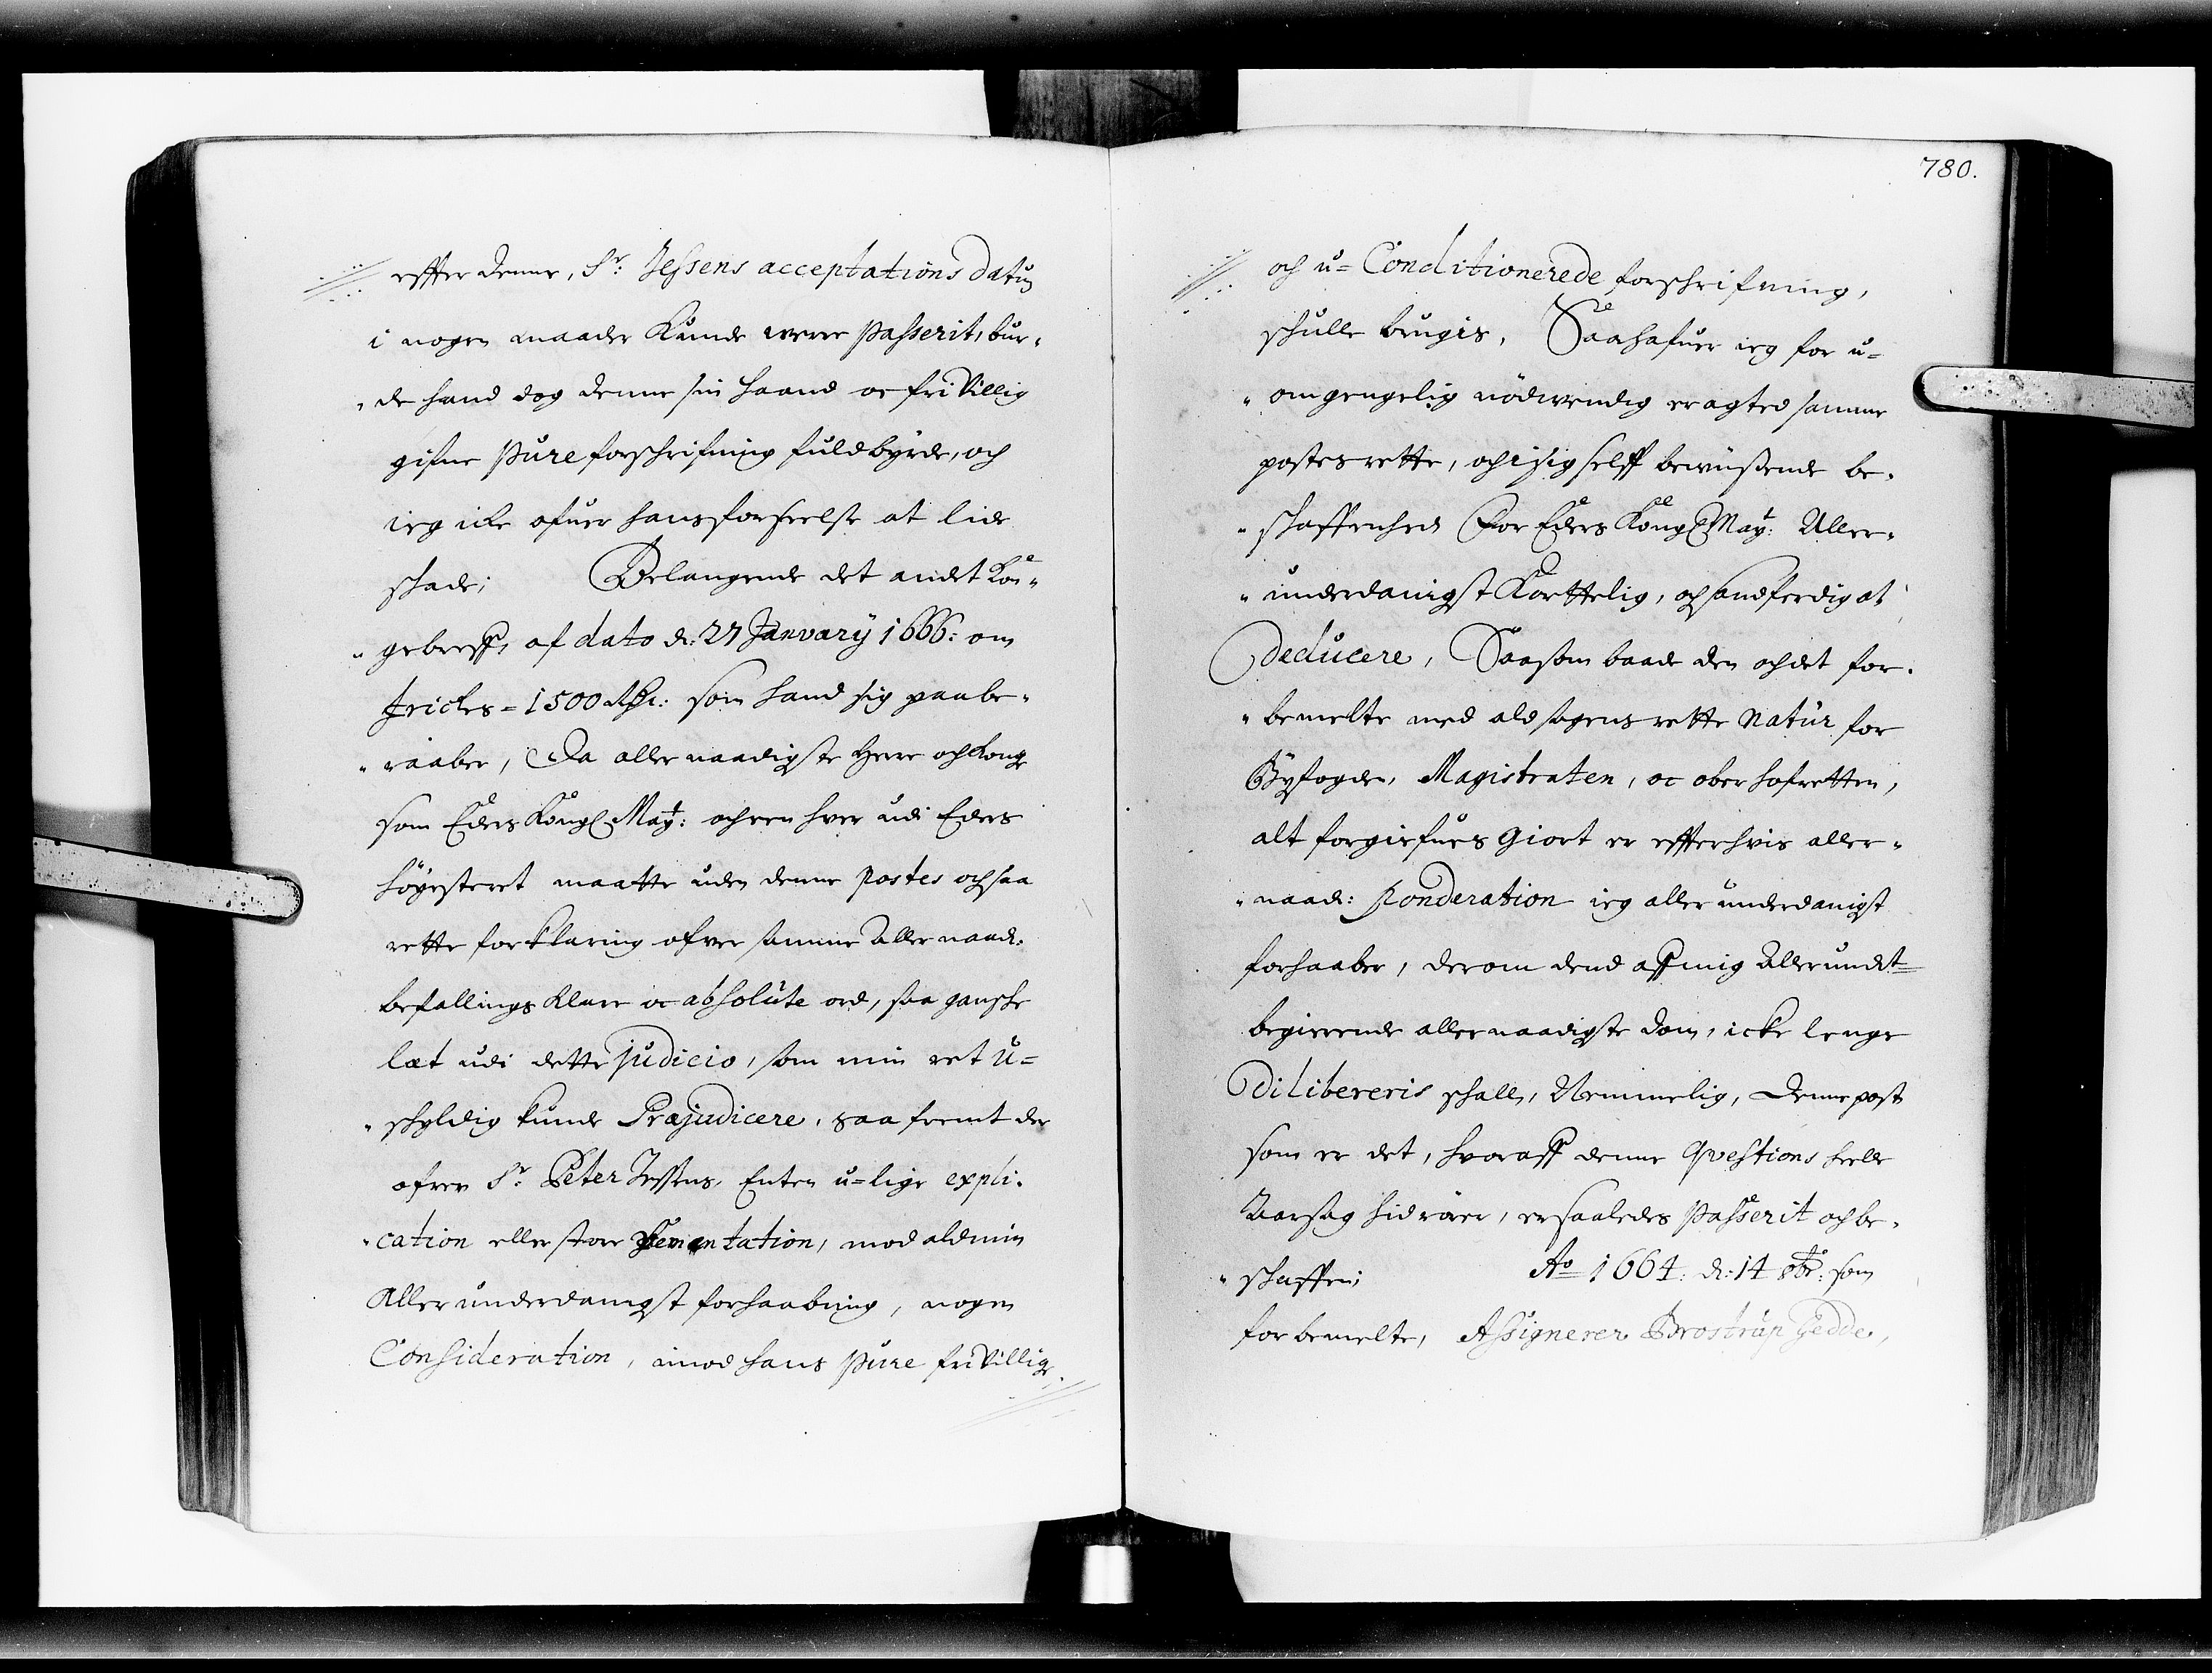 effter denne, Sr: Jessens acceptations datum
i nogen maader kunde were passerit, bur-
de hand dog denne sin haand oc friVillig
gifne pure forschrifning fuldbyrde, och
ieg icke ofuer hans forseelse at lide
schade; Belangende det andet Kon-
gebreff, af dato d: 27 January 1666: om
Frichs = 1500 Rdr: som hand sig paabe-
raaber, Da aller naadigste Herre och Kong
som Eders Kongl May: och een hver udi Eders
höyesteret maatte uden denne postes och saa
rette forklaring ofver samme Aller naad:
befallings klare oc absolute ord, saa gansche
læt udi dette judicio, som min ret u-
schyldig kunde Præjudicere, saa fremt der
ofver Sr: Peter Jessens, Enten u-lige expli-
cation eller store, mod ald min
Aller underdanigst forhaabning, nogen
Consideration, imod hans pure friVillige
780.
och u-Conditionerede forschrifning,
schulle brugis, Saa hafuer ieg for u-
omgengelig nödvendig eragted samme
postes rette, och i sig selff bewüssende be-
schaffenhed For Eders Kongl May: Aller-
underdanigst Korttelig, och sandferdig at
Deducere, Saasom baade den och det for-
bemelte med ald sagens rette natur for
Byfogden, Magistraten, oc ober hofretten,
alt forgiefues giort er effter hvis aller-
naad: Ponderation ieg aller underdanigst
forhaaber, derom dend aff mig Allerundt=
begierende aller naadigste dom, icke lenge
Dilibereris schall, Nemmelig, denne post
som er det, hvoraff denne qvestions heele
Aarsag hidrörer, er saaledes passerit och be-
schaffen; Ao 1664: d: 14 8br: som
forbemelte, Assignerer Brostrup Gedde,